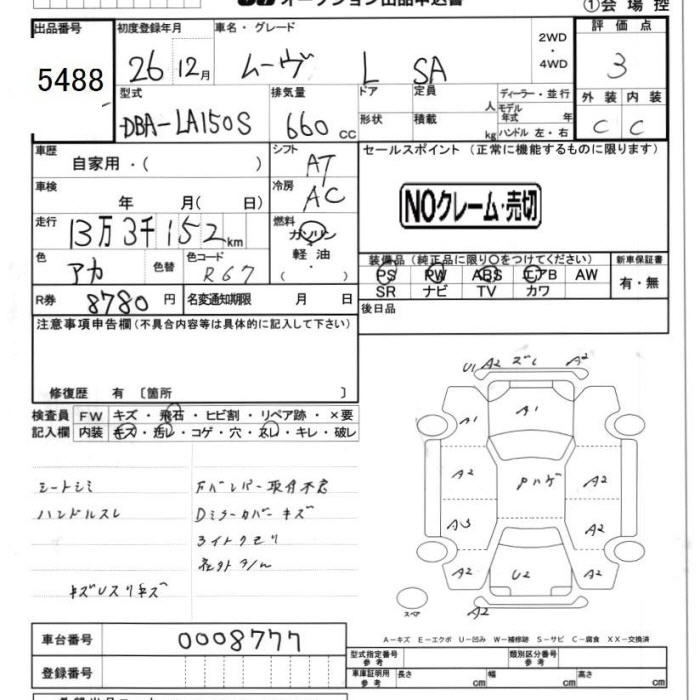 オークション出品申込書
①会場控
出品番号 初度登録年月 車名・グレード 評価点
5488 26 12月 ムーヴ L SA 2WD ・ 4WD 3
型式 排気量 ドア 定員 人 ディーラー・並行 外装 内装
DBA-LA150S 660cc 形状 積載 kg モデル年式 年 ハンドル 左・右 C C
車歴 自家用・( ) シフト AT セールスポイント (正常に機能するものに限ります)
車検 年 月( 日) 冷房 AC
NOクレーム・売切
走行 13万3千152km 燃料 ガソリン・軽油・( )
装備品(純正品に限り○をつけてください) 新車保証書
色 アカ 色替 色コード R67 PS PW ABS エアB AW 有・無
SR ナビ TV カワ
R券 8780円 名変通知期限 月 日 後日品
注意事項申告欄(不具合内容等は具体的に記入して下さい)
修復歴 有 〔箇所 〕
検査員 FW キズ・飛石・ヒビ割・リペア跡・×要
記入欄 内装 キズ・汚レ・コゲ・穴・スレ・キレ・破レ
シートシミ
ハンドルスレ
Fバンパー取付不良
Dミラーカバーキズ
ライトクモリ
U1 A2 ズレ A2
A1 A1
A2 Pハゲ A2
A3 A2
A2 U2 A2
A2
スペア
A-キズ E-エクボ U-凹み W-補修跡 S-サビ C-腐食 XX-交換済
車台番号 0008777
型式指定番号 参考 類別区分番号 参考
登録番号 車庫証明用 参考 長さ cm 幅 cm 高さ cm